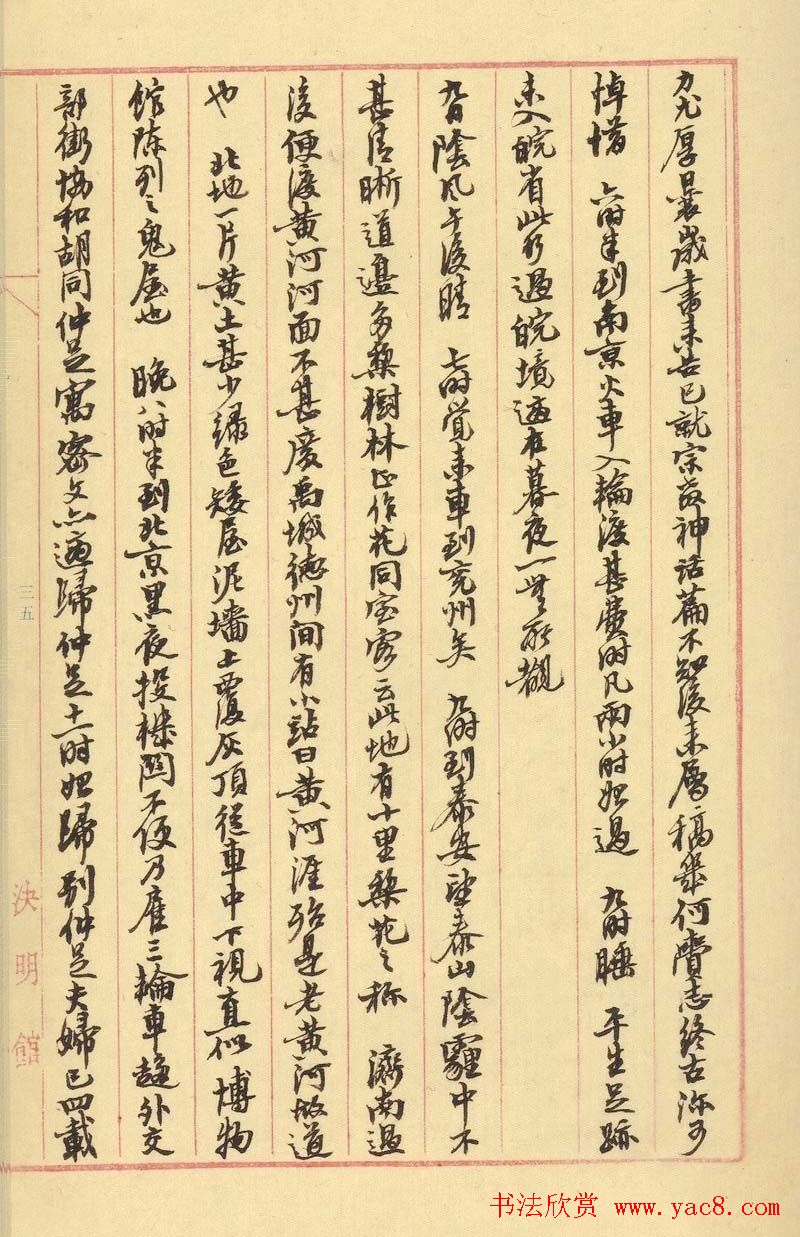 力尤厚曩歲書來告已就宗教神話篇不知後来屬稿幾何賫志終古弥可
悼惜　六时半到南京火車入輪渡甚費时凡兩小时始過　九时睡　平生足跡
未入皖省此行過皖境適在暮夜一無所覩
九日陰風午後晴　七时覺来車到兖州矣　九时到泰安望泰山陰霾中不
甚清晰道邊多梨樹林正作花同室客云此地有十里梨花之称　濟南過
後便渡黄河河面不甚廣禹城德州间有小站曰黄河涯殆是老黄河故道
也　北地一片黄土甚少緑色矮屋泥墻土覆灰頂從車中下視直似博物
館陳列之鬼屋也　晚八时半到北京黑夜投機関不便乃雇三輪車趨外交
部街協和胡同仲足寓密文亦適歸仲足十一时始歸别仲足夫婦已四載
三五
決明館
书法欣赏 www.yac8.com